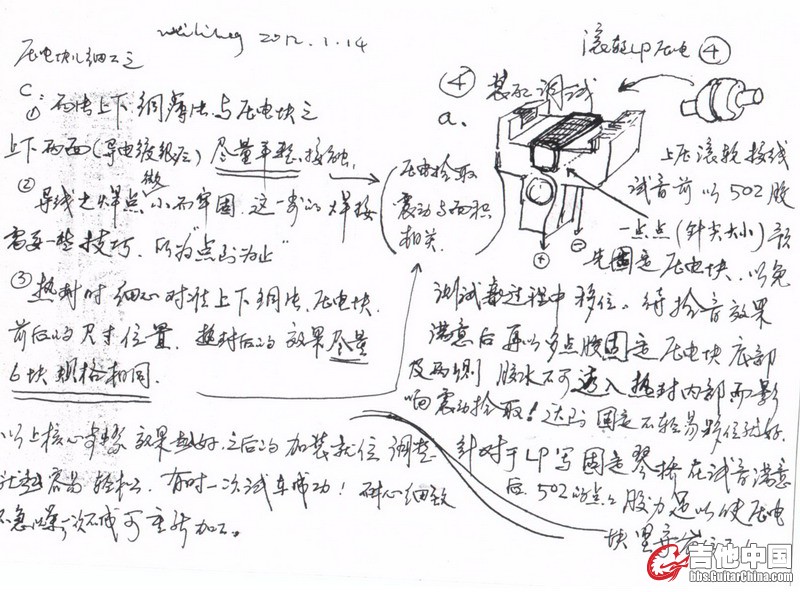 2012.1.14
压电块儿细工艺
C
① 两片上下铜薄片与压电块之
上下两面(导电镀银层)尽量平整接触,
② 导线之焊点微小而牢固,这一步的焊接
需要一些技巧,所为"点到为止"
③ 热封时细心对准上下铜片、压电块,
前后的尺寸位置,热封后的效果尽量
6块规格相同.
压电拾取
震动与面积
相关.
以上核心步骤效果越好,之后的加装就位调整
就越容易轻松.有时一次试车成功!耐心细致
不急噪,一次不成可重新加工。
滚轮LP压电 ④
④ 装配调试
a.
上压滚轮接线
试音前以502胶
一点点(针尖大小)预
先固定压电块,以免
测试音过程中移位,待拾音效果
满意后再以多点胶固定压电块底部
及两侧 胶水不可透入热封内部而影
响震动拾取!达到固定不轻易移位就好.
针对于LP写固定琴桥在试音满意
后,502的点点胶力足以使压电
块
+
-
吉他中国
bbs.GuitarChina.com